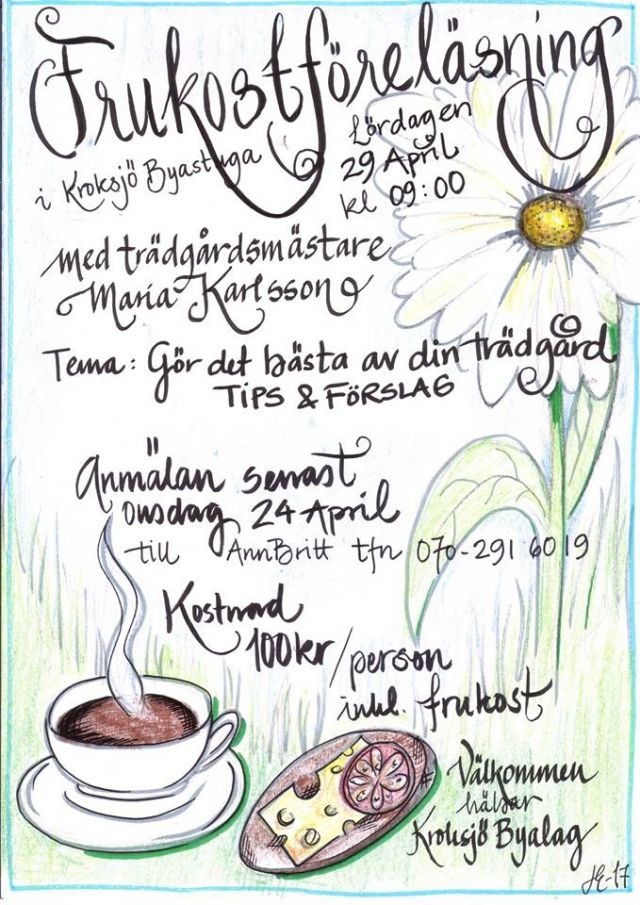 Frukostföreläsning
i Kroksjö Byastuga
Lördagen
29 April
kl 09:00
med trädgårdsmästare
Maria Karlsson
Tema: Gör det bästa av din trädgård
TIPS & FÖRSLAG
Anmälan senast
onsdag 24 April
till AnnBritt tfn 070-291 60 19
Kostnad
100kr/person
inkl. frukost
Välkommen
hälsar
Kroksjö Byalag
HE-17